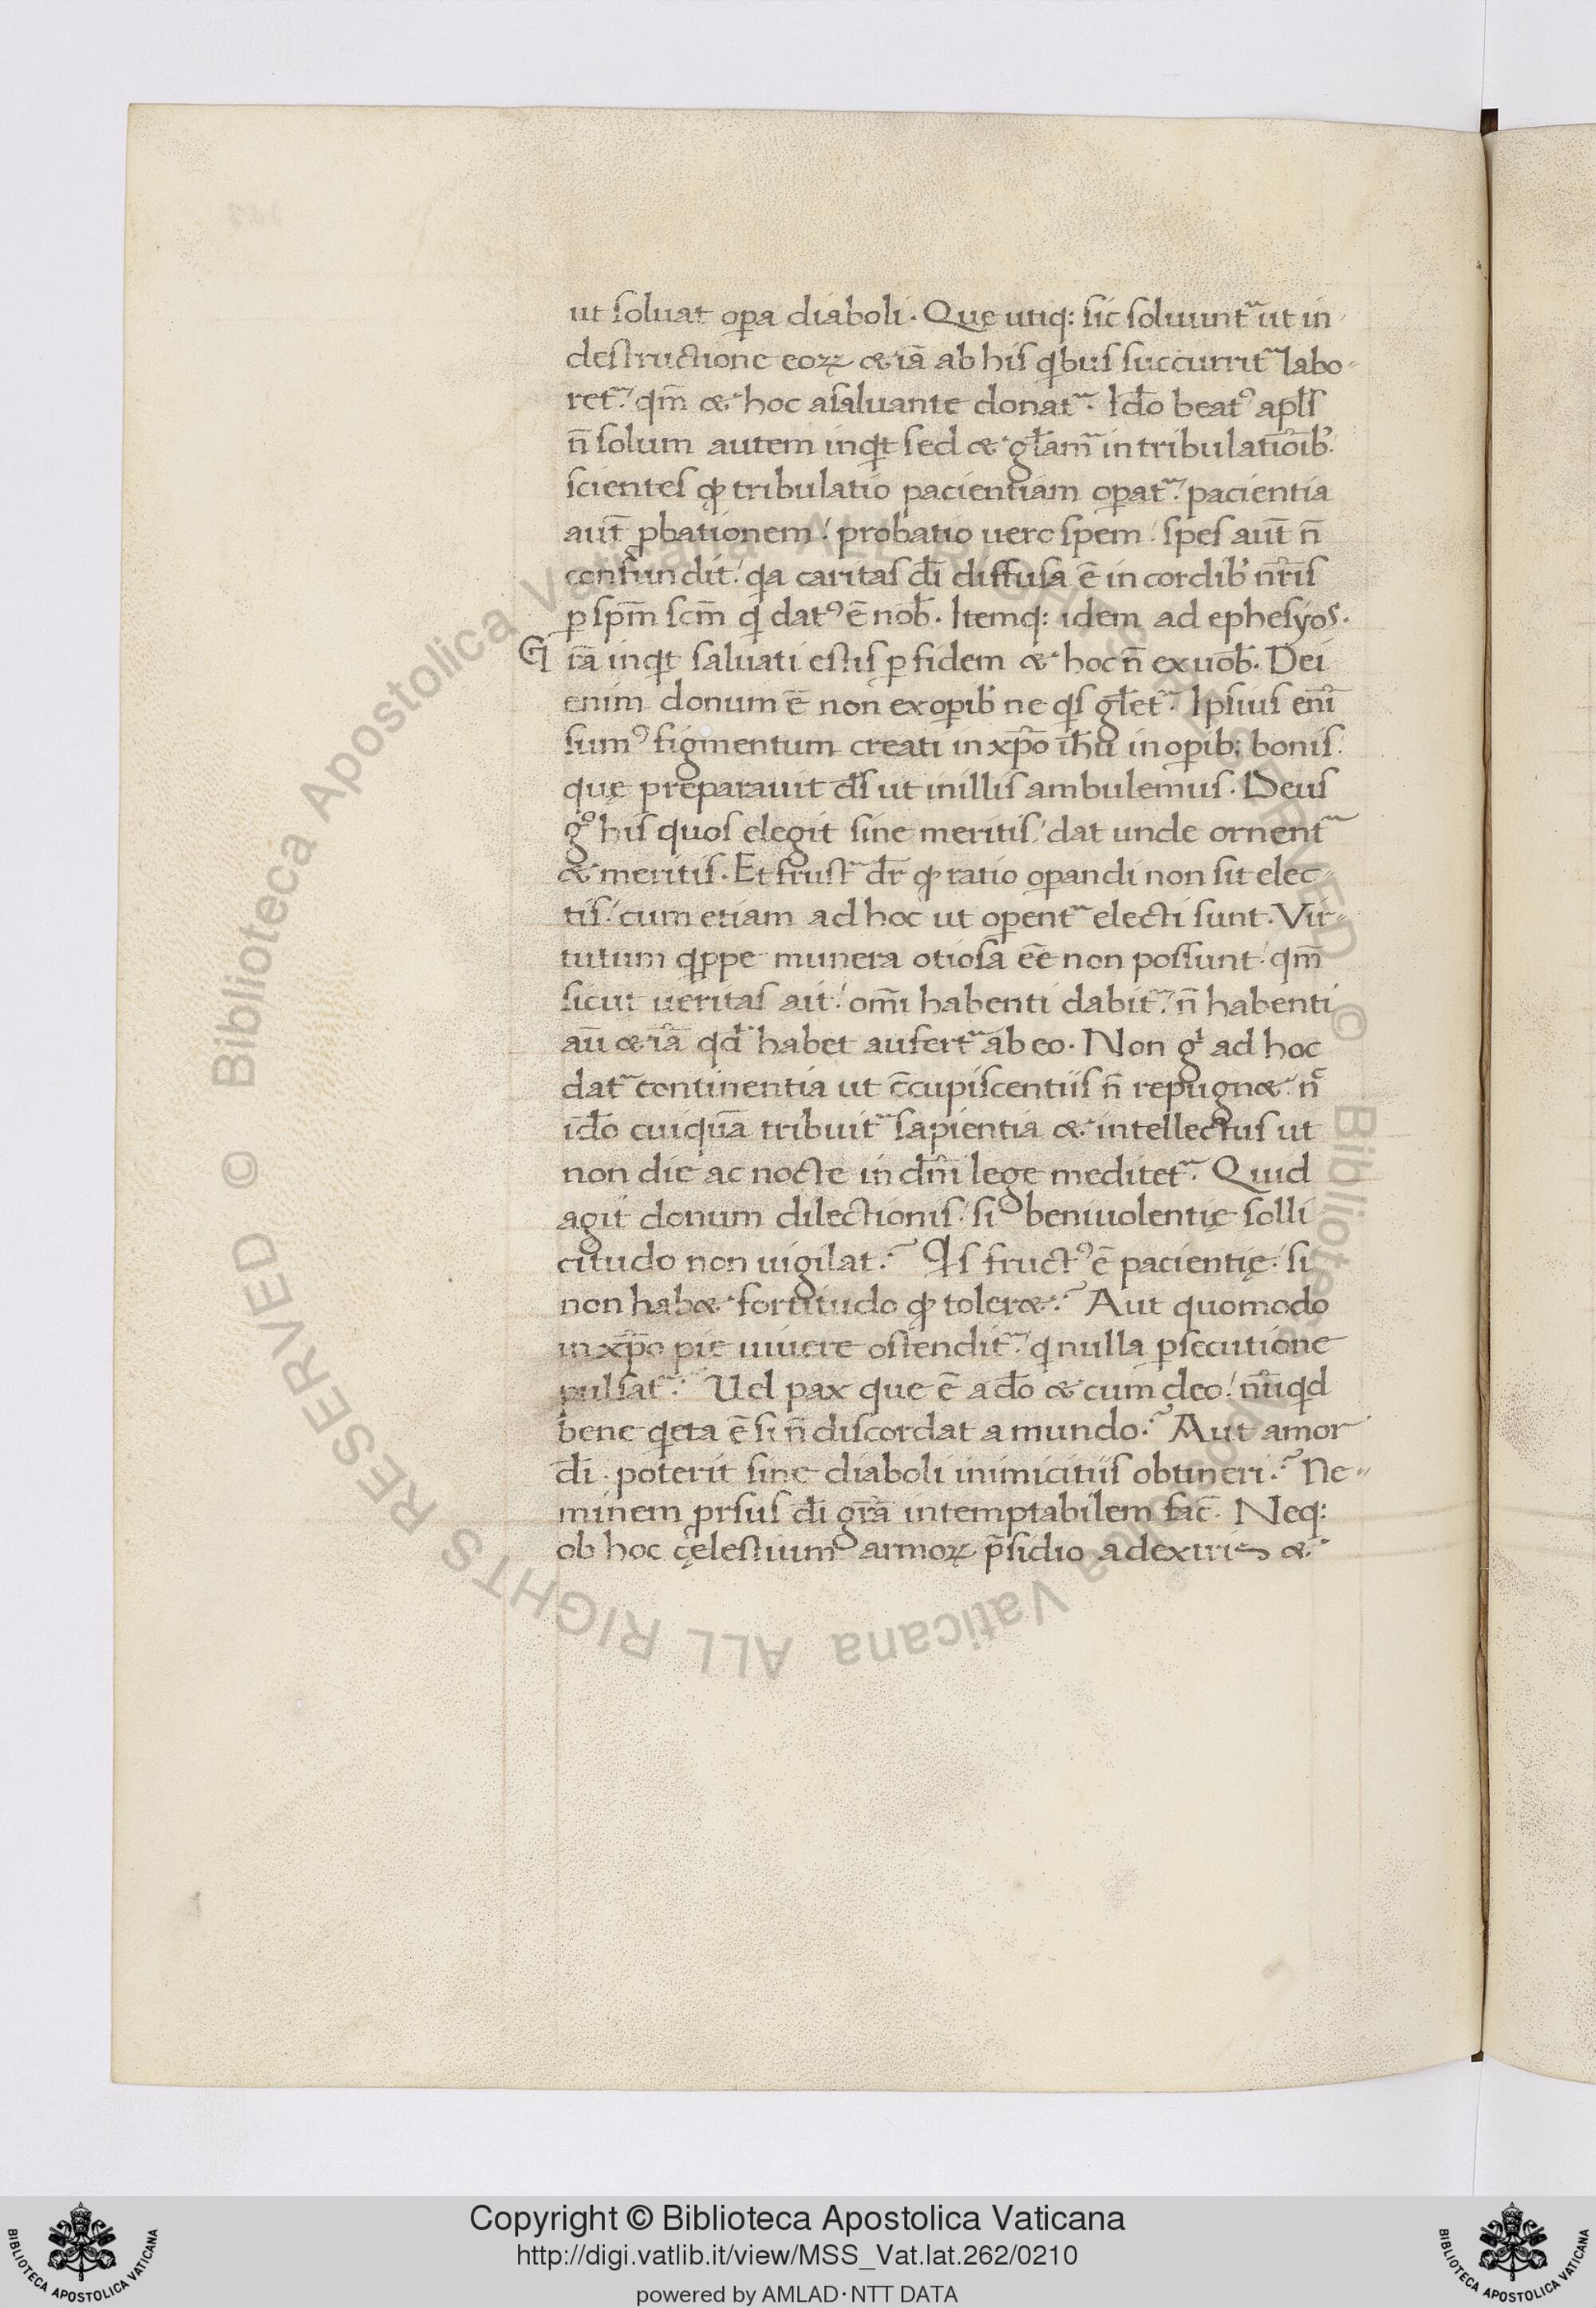 ut soluat opa diaboli. Quę utiq: sic soluunt᷑ ut in
destructione eoꝝ &iā ab his qͥbus succurrit᷑ labo-
ret᷑. qm̄ & hoc asaluante donat᷑. Idō beatꝰ apl̄s
n̄ solum autem inqͥt sed & gl̄am᷑ in tribulatiōib;
scientes ꝙ tribulatio pacientiam oꝑat᷑. pacientia
aut̄ ꝓbationem. probatio uero spem. spes aut̄ n̄
confundit. qͥa caritas dī diffusa ē in cordib; nr̄is
ꝑ spm̄ scm̄ qͥ datꝰ ē nob̄. Itemq: idem ad ephesyos.
Gr̄a inqͥt saluati estis ꝑ fidem & hoc n̄ ex uob̄. Dei
enim donum ē non exoꝑib; ne qͥs gl̄et᷑. Ipsius enī
sumꝰ figmentum creati in xp̄o ih̄u in oꝑib; bonis.
quę preparauit ds̄ ut inillis ambulemus. Deus
gͦ his quos elegit sine meritis dat unde ornent᷑
& meritis. Et frust᷑ dr̄ ꝙ ratio oꝑandi non sit elec-
tis. cum etiam ad hoc ut oꝑent᷑ electi sunt. Vir-
tutum qͥppe munera otiosa eē non possunt. qm̄
sicut ueritas ait. om̄i habenti dabit᷑. n̄ habenti
aū &iā qd̄ habet aufert᷑ ab eo. Non gͥ ad hoc
dat᷑ continentia ut c̄cupiscentiis n̄ repugn&. nͨ
idō cuiquā tribuit᷑ sapientia & intellectus ut
non die ac nocte in dn̄i lege meditet᷑. Quid
agit donum dilectionis. si beniuolentię solli
citudo non uigilat. Qͥs fructꝰ ē pacientię. si
non hab& fortitudo ꝙ toler&. Aut quomodo
in xp̄o pie uiuere ostendit᷑. qͥ nulla ꝑsecutione
pulsat᷑. Uel pax que ē a dō & cum deo. nūqͥd
bene qͥeta ē si n̄ discordat a mundo. Aut amor
dī. poterit sine diaboli inimicitiis obtineri. Ne-
minem ꝓrsus dī gr̄a intemptabilem fac̄. Neq:
ob hoc cęlestium armoꝝ p̄sidio adextris &
Copyright © Biblioteca Apostolica Vaticana
http://digi.vatlib.it/view/MSS_Vat.lat.262/0210
powered by AMLAD·NTT DATA
BIBLIOTECA APOSTOLICA VATICANA
BIBLIOTECA APOSTOLICA VATICANA
© Biblioteca Apostolica Vaticana ALL RIGHTS RESERVED © Biblioteca Apostolica Vaticana ALL RIGHTS RESERVED